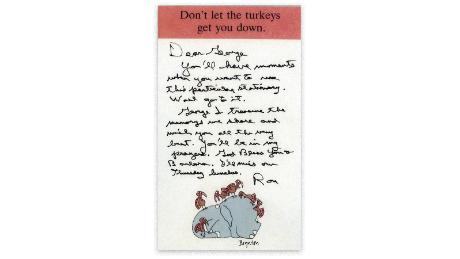 Don't let the turkeys
get you down.
Dear George
You'll have moments
when you want to use
this particular stationery.
Well go to it.
George I treasure the
memorys we share and
wish you all the very
best. You'll be in my
prayers. God Bless You &
Barbara. I'll miss our
Thursday lunches.
Ron
Boynton